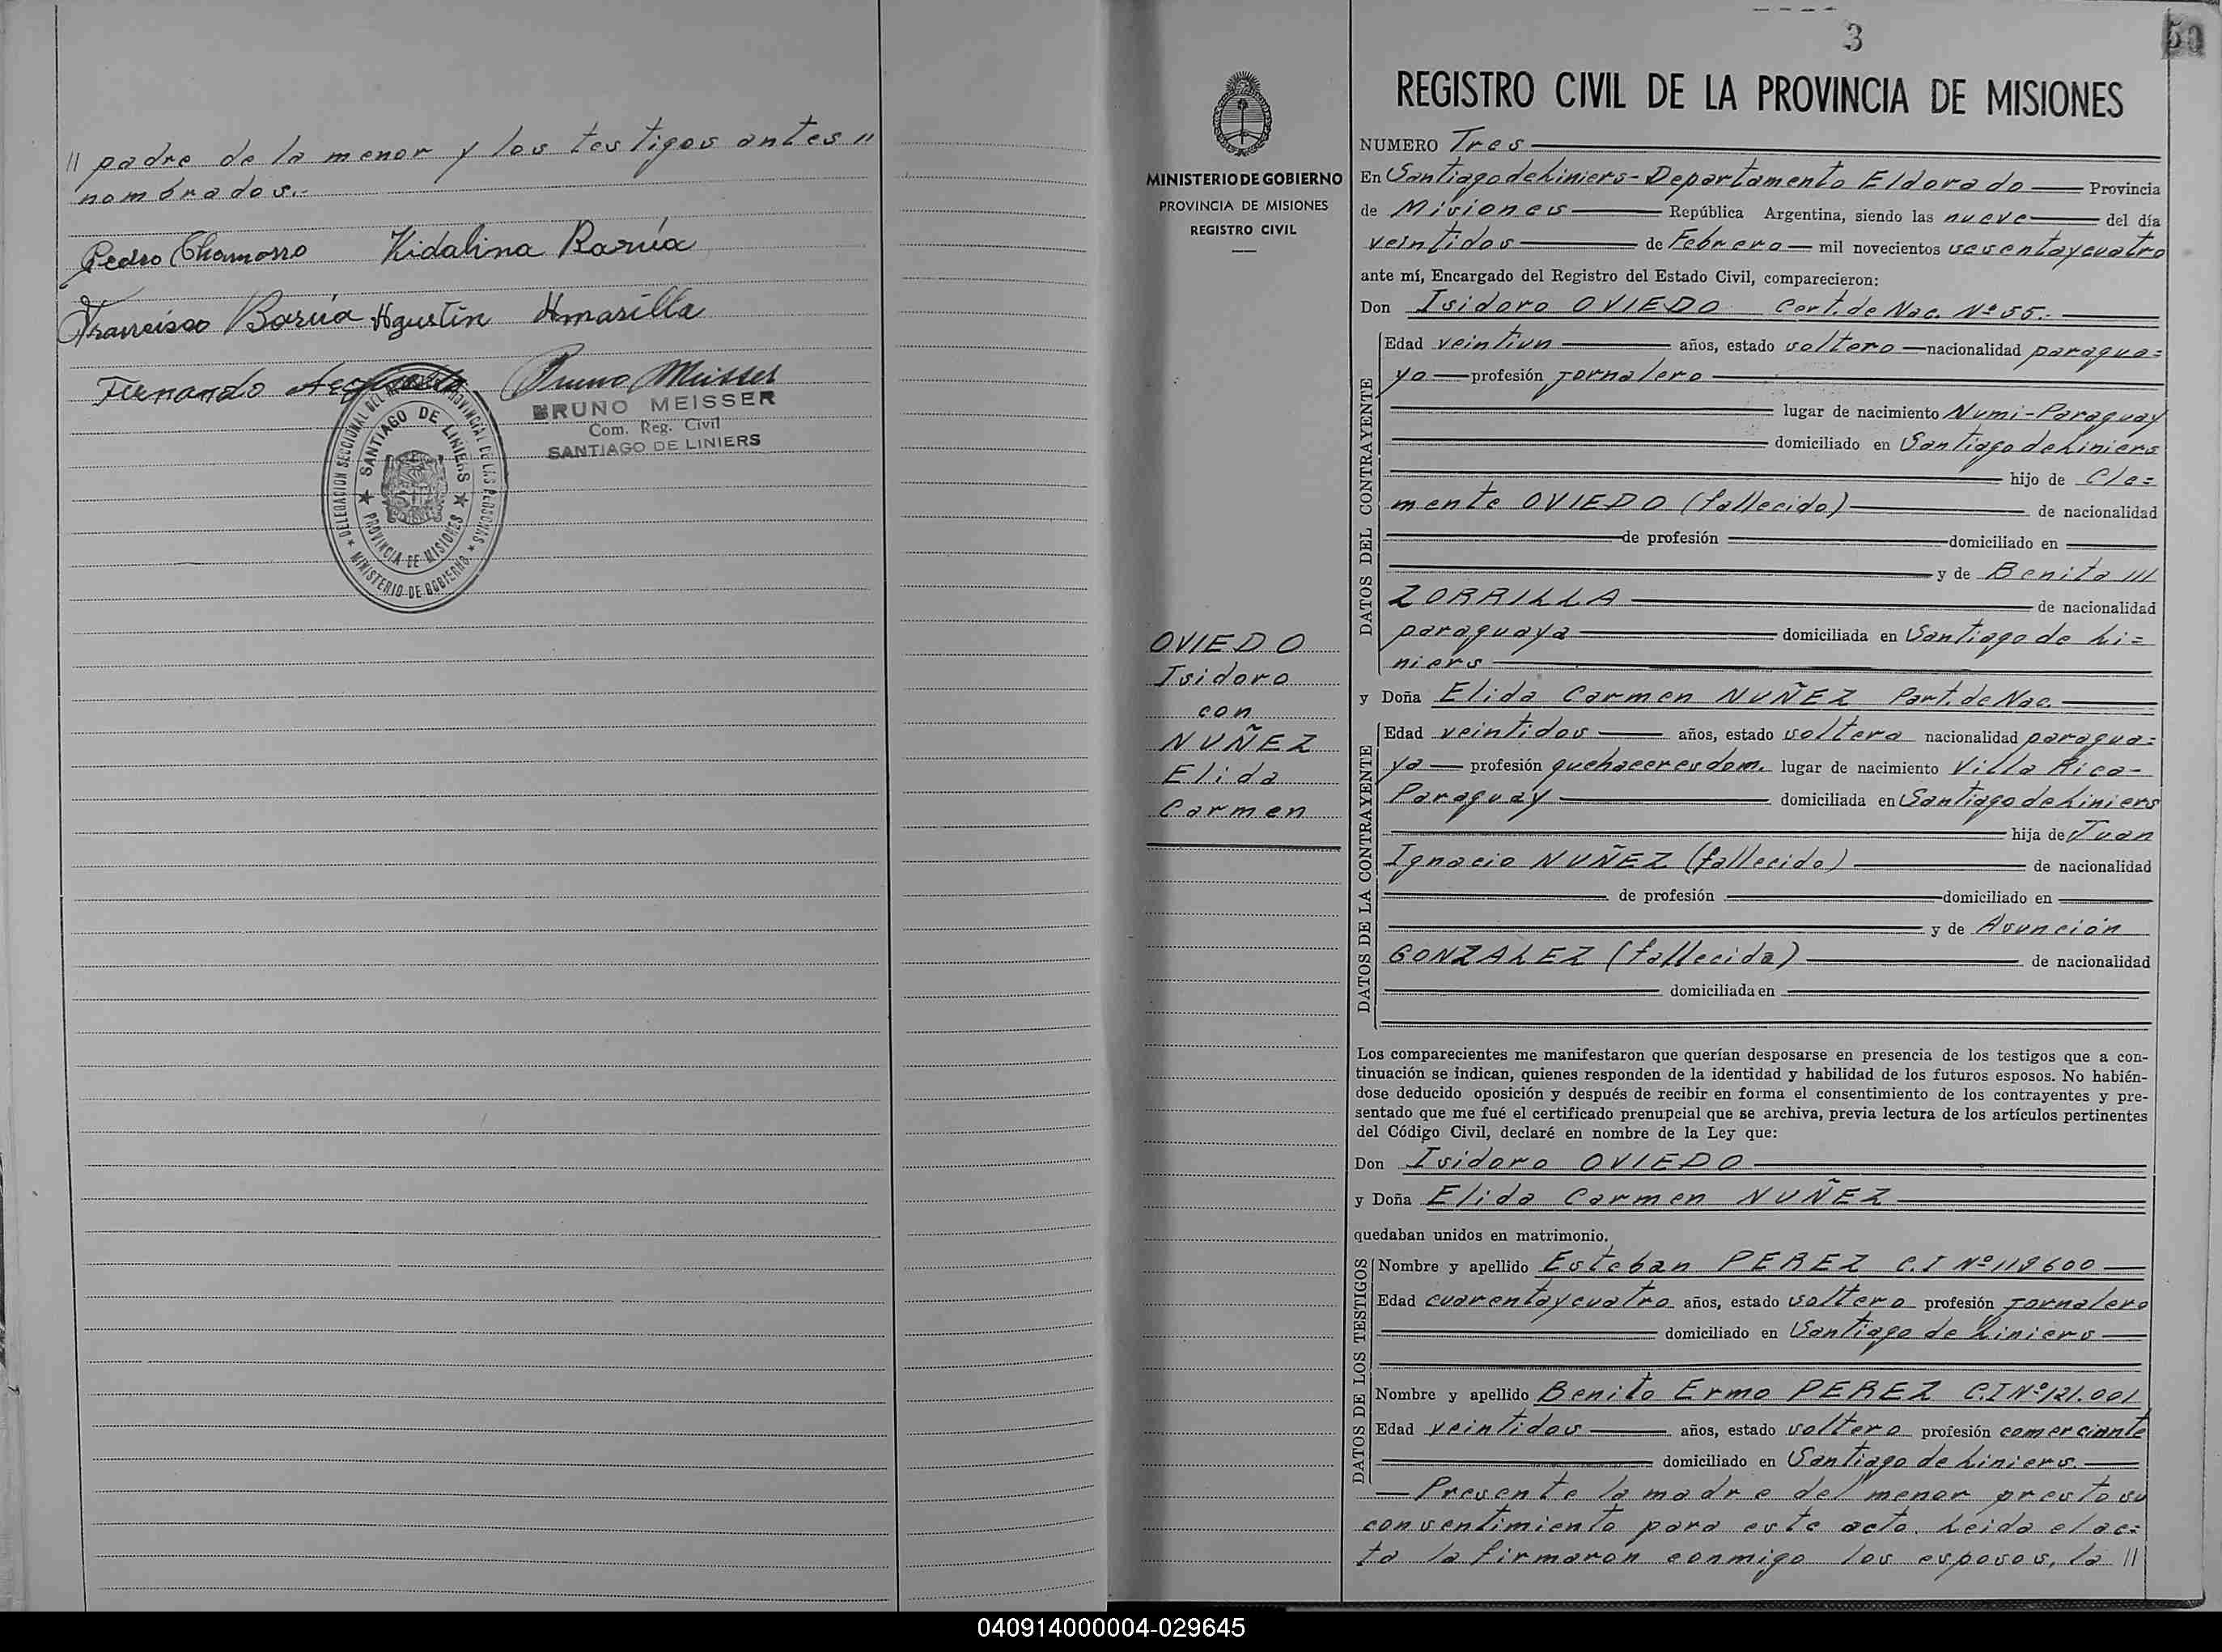 // padre de la menor y los testigos antes //
nombrados.-
Pedro Chamorro Kidalina Barúa
Francisco Barúa Agustin Amarilla
Fernando
Bruno Meisser
BRUNO MEISSER
Com. Reg. Civil
SANTIAGO DE LINIERS
SANTIAGO DE LINIERS
PROVINCIA DE MISIONES
MINISTERIO DE GOBIERNO
3
50
REGISTRO CIVIL DE LA PROVINCIA DE MISIONES
MINISTERIO DE GOBIERNO
PROVINCIA DE MISIONES
REGISTRO CIVIL
OVIEDO
Isidoro
con
NUÑEZ
Elida
Carmen
NUMERO Tres
En Santiago de Liniers - Departamento Eldorado Provincia
de Misiones República Argentina, siendo las nueve del día
veintidos de Febrero mil novecientos sesentaycuatro
ante mí, Encargado del Registro del Estado Civil, comparecieron:
Don Isidoro OVIEDO Cert. de Nac. Nº 55.-
DATOS DEL CONTRAYENTE
Edad veintiun años, estado soltero nacionalidad paragua=
yo profesión jornalero
lugar de nacimiento Numi-Paraguay
domiciliado en Santiago de Liniers
hijo de Cle=
mente OVIEDO (fallecido) de nacionalidad
de profesión domiciliado en
y de Benita ///
ZORRILLA de nacionalidad
paraguaya domiciliada en Santiago de Li=
niers
y Doña Elida Carmen NUÑEZ Part. de Nac.
DATOS DE LA CONTRAYENTE
Edad veintidos años, estado soltera nacionalidad paragua=
ya profesión quehaceres dom. lugar de nacimiento Villa Rica-
Paraguay domiciliada en Santiago de Liniers
hija de Juan
Ignacio NUÑEZ (fallecido) de nacionalidad
de profesión domiciliado en
y de Asunción
GONZALEZ (fallecida) de nacionalidad
domiciliada en
Los comparecientes me manifestaron que querían desposarse en presencia de los testigos que a con-
tinuación se indican, quienes responden de la identidad y habilidad de los futuros esposos. No habién-
dose deducido oposición y después de recibir en forma el consentimiento de los contrayentes y pre-
sentado que me fué el certificado prenupcial que se archiva, previa lectura de los artículos pertinentes
del Código Civil, declaré en nombre de la Ley que:
Don Isidoro OVIEDO
y Doña Elida Carmen NUÑEZ
quedaban unidos en matrimonio.
DATOS DE LOS TESTIGOS
Nombre y apellido Esteban PEREZ C.I Nº 119600
Edad cuarentaycuatro años, estado soltero profesión jornalero
domiciliado en Santiago de Liniers
Nombre y apellido Benito Ermo PEREZ C.I Nº 121.001
Edad veintidos años, estado soltero profesión comerciante
domiciliado en Santiago de Liniers.
- Presente la madre del menor presto su
consentimiento para este acto. Leida el ac=
ta la firmaron conmigo los esposos, la //
040914000004-029645